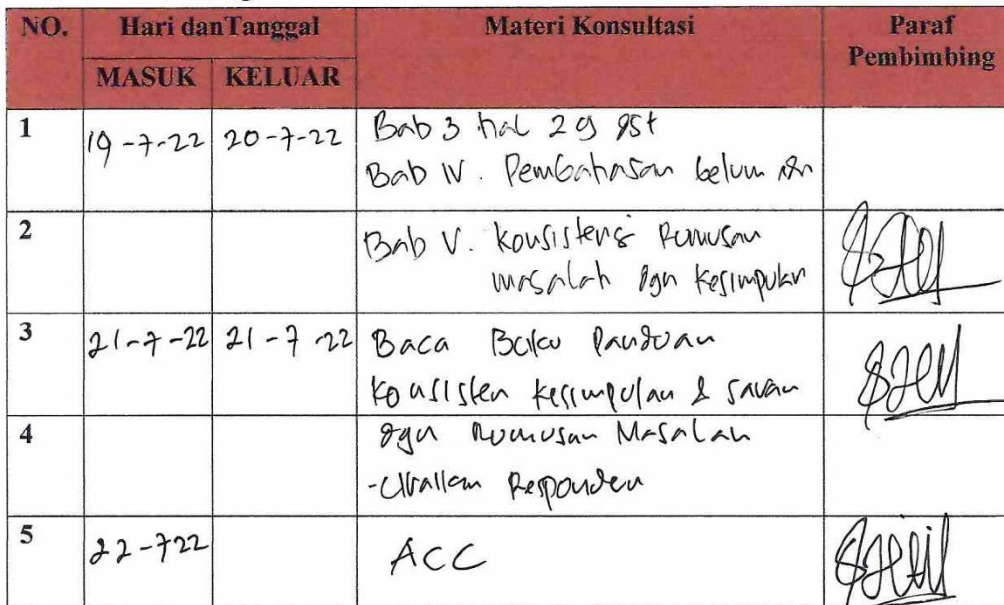 NO. Hari dan Tanggal Materi Konsultasi Paraf Pembimbing
MASUK KELUAR
1 19-7-22 20-7-22 Bab 3 hal 29
Bab IV. Pembahasan belum
2 Bab V. Konsistensi Rumusan
masalah dgn Kesimpulan
3 21-7-22 21-7-22 Baca Buku Panduan
Konsisten kesimpulan & saran
4 dgn Rumusan Masalah
- Responden
5 22-722 ACC